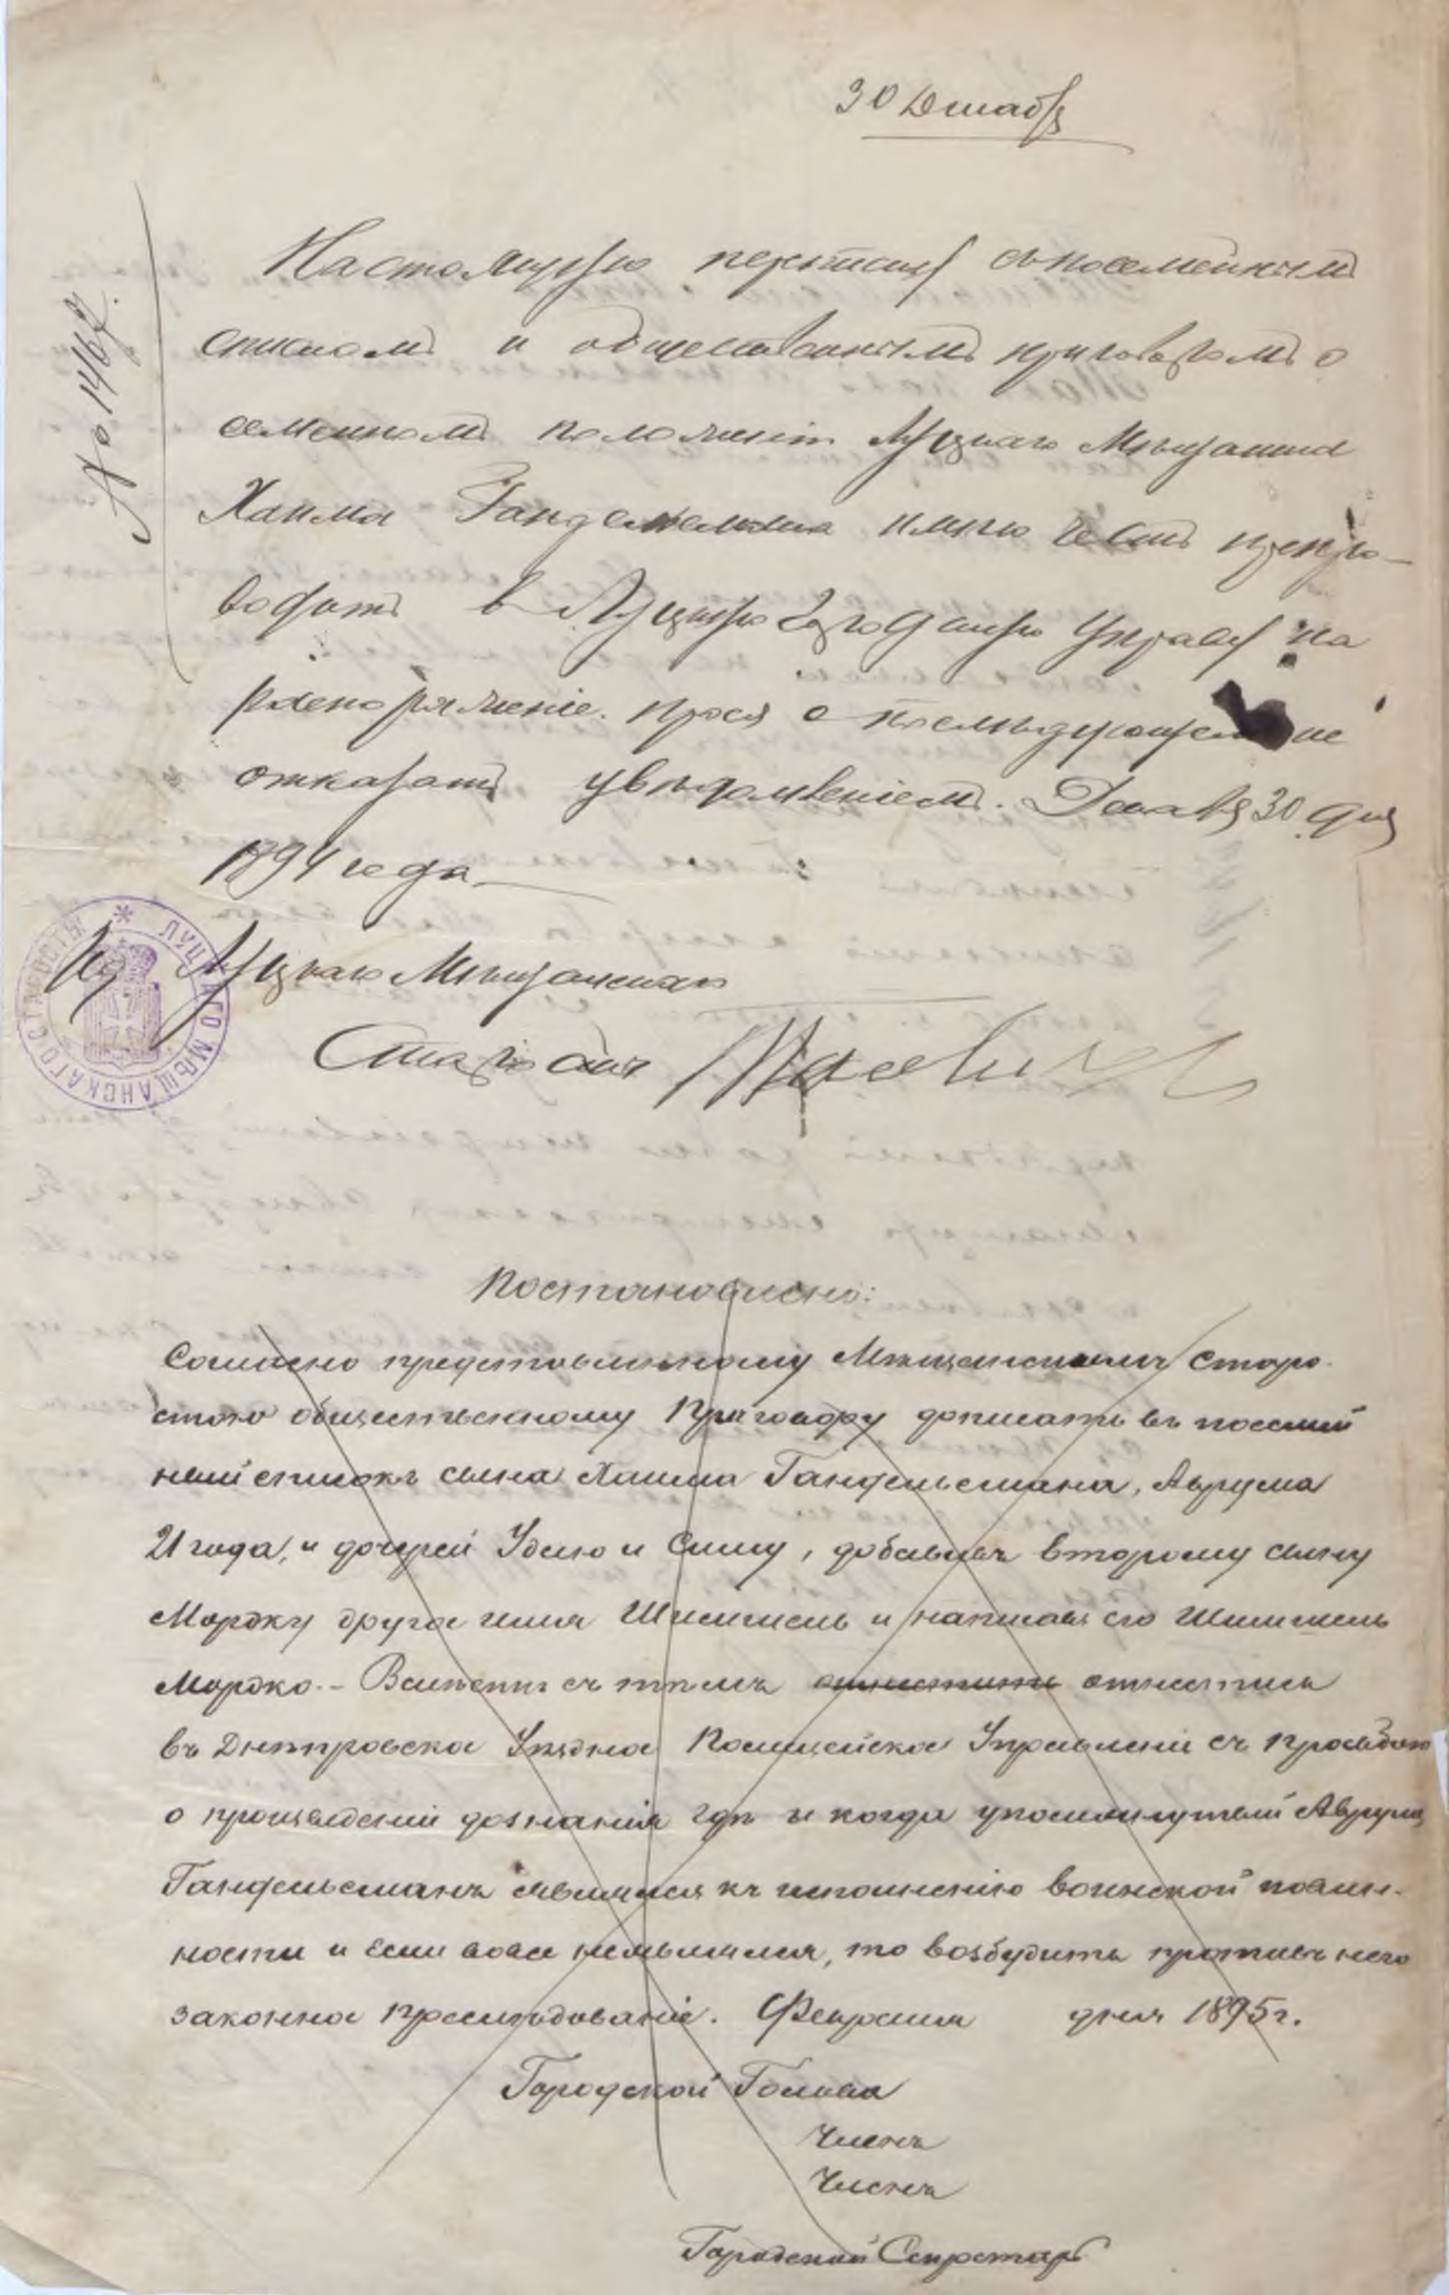 30 Декабр
№ 1467.
Настоящую переписку съ посемейнымъ
спискомъ и общественнымъ приговоромъ о
семейномъ положеніи Луцкаго Мѣщанина
Хаима Гандельсмана имѣю честь препро-
водить в Луцкую Городскую Управу на
распоряженіе. прося о послѣдующемъ не
отказать увѣдомленіемъ. Декабря 30 дня
1894 года
ЛУЦКАГО МѢЩАНСКАГО СТАРОСТЫ
Луцкаго Мѣщанскаго
Старосты
Постановлено:
Согласно представленному Мѣщанскимъ Старо-
стою общественному Приговору дописать въ посемей
ный списокъ сына Хаима Гандельсмана, Аврума
21 года, и дочерей Удлю и Симу, добавивъ второму сыну
Мордку другое имя и написавъ его
Мордко. – Вмѣстѣ съ тѣмъ отнестись
въ Днѣпровское Уѣздное Полицейское Управленіе съ просьбою
о произведеніи дознанія гдѣ и когда упомянутый Аврумъ
Гандельсманъ являлся къ исполненію воинской повин-
ности и если вовсе неявлялся, то возбудить противъ него
законное преслѣдованіе. Февраля дня 1895 г.
Городской Голова
Членъ
Членъ
Городской Секретарь